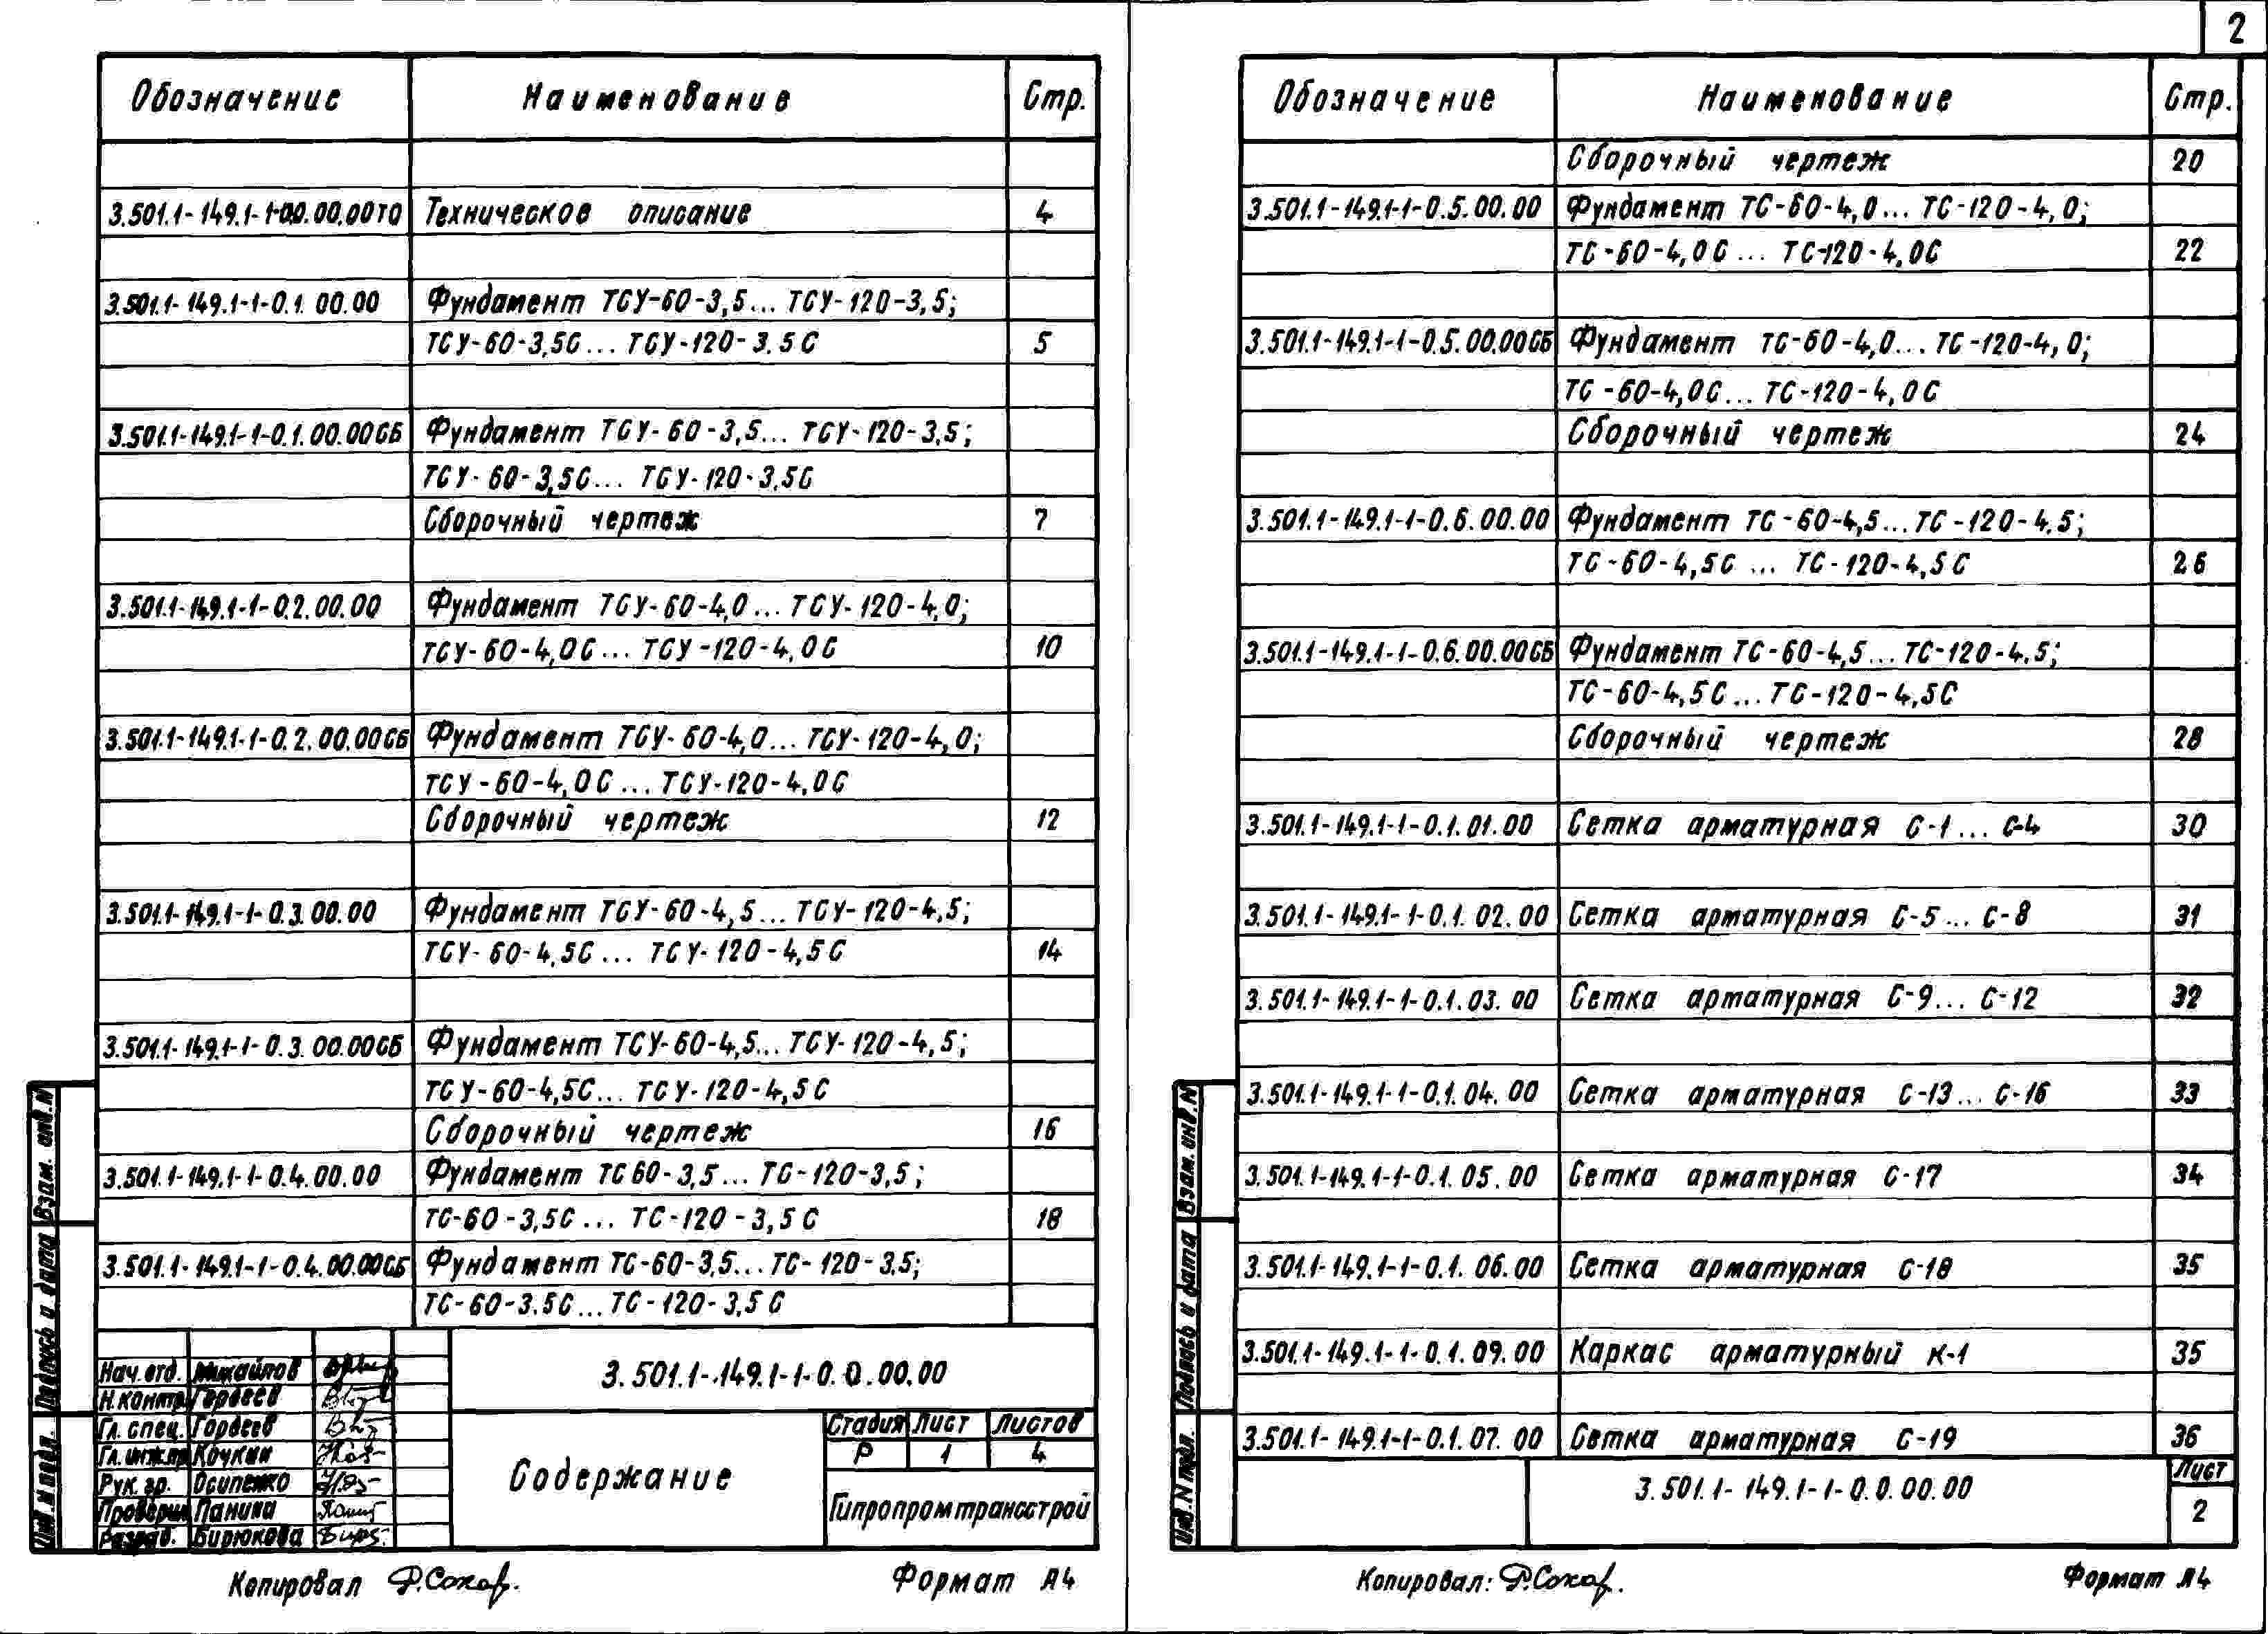 2
Обозначение Наименование Стр.
3.501.1-149.1-1-0.0.00.00ТО Техническое описание 4
3.501.1-149.1-1-0.1.00.00 Фундамент ТСУ-60-3,5... ТСУ-120-3,5;
ТСУ-60-3,5С... ТСУ-120-3.5С 5
3.501.1-149.1-1-0.1.00.00СБ Фундамент ТСУ-60-3,5... ТСУ-120-3,5;
ТСУ-60-3,5С... ТСУ-120-3,5С
Сборочный чертеж 7
3.501.1-149.1-1-0.2.00.00 Фундамент ТСУ-60-4,0... ТСУ-120-4,0;
ТСУ-60-4,0С... ТСУ-120-4,0С 10
3.501.1-149.1-1-0.2.00.00СБ Фундамент ТСУ-60-4,0... ТСУ-120-4,0;
ТСУ-60-4,0С... ТСУ-120-4,0С
Сборочный чертеж 12
3.501.1-149.1-1-0.3.00.00 Фундамент ТСУ-60-4,5... ТСУ-120-4,5;
ТСУ-60-4,5С... ТСУ-120-4,5С 14
3.501.1-149.1-1-0.3.00.00СБ Фундамент ТСУ-60-4,5... ТСУ-120-4,5;
ТСУ-60-4,5С... ТСУ-120-4,5С
Сборочный чертеж 16
3.501.1-149.1-1-0.4.00.00 Фундамент ТС 60-3,5... ТС-120-3,5;
ТС-60-3,5С... ТС-120-3,5С 18
3.501.1-149.1-1-0.4.00.00СБ Фундамент ТС-60-3,5... ТС-120-3.5;
ТС-60-3.5С... ТС-120-3,5С
Взам. инв.N
Подпись и дата
Инв.N подл.
Нач.отд. Михайлов
Н.контр. Гордеев
Гл.спец. Гордеев
Гл.инж.пр. Кочкин
Рук.гр. Осипенко
Проверил Панина
Разраб. Бирюкова
3.501.1-149.1-1-0.0.00.00
Содержание
Стадия Лист Листов
Р 1 4
Гипропромтрансстрой
Копировал Формат А4
Обозначение Наименование Стр.
Сборочный чертеж 20
3.501.1-149.1-1-0.5.00.00 Фундамент ТС-60-4,0... ТС-120-4,0;
ТС-60-4,0С... ТС-120-4,0С 22
3.501.1-149.1-1-0.5.00.00СБ Фундамент ТС-60-4,0... ТС-120-4,0;
ТС-60-4,0С... ТС-120-4,0С
Сборочный чертеж 24
3.501.1-149.1-1-0.6.00.00 Фундамент ТС-60-4,5... ТС-120-4.5;
ТС-60-4,5С ... ТС-120-4,5С 26
3.501.1-149.1-1-0.6.00.00СБ Фундамент ТС-60-4,5... ТС-120-4.5;
ТС-60-4,5С... ТС-120-4,5С
Сборочный чертеж 28
3.501.1-149.1-1-0.1.01.00 Сетка арматурная С-1... С-4 30
3.501.1-149.1-1-0.1.02.00 Сетка арматурная С-5... С-8 31
3.501.1-149.1-1-0.1.03.00 Сетка артатурная С-9... С-12 32
3.501.1-149.1-1-0.1.04.00 Сетка арматурная С-13... С-16 33
3.501.1-149.1-1-0.1.05.00 Сетка арматурная С-17 34
3.501.1-149.1-1-0.1.06.00 Сетка арматурная С-18 35
3.501.1-149.1-1-0.1.09.00 Каркас арматурный К-1 35
3.501.1-149.1-1-0.1.07.00 Сетка арматурная С-19 36
Взам. инв.N
Подпись и дата
Инв.N подл.
3.501.1-149.1-1-0.0.00.00
Лист
2
Копировал: Формат А4